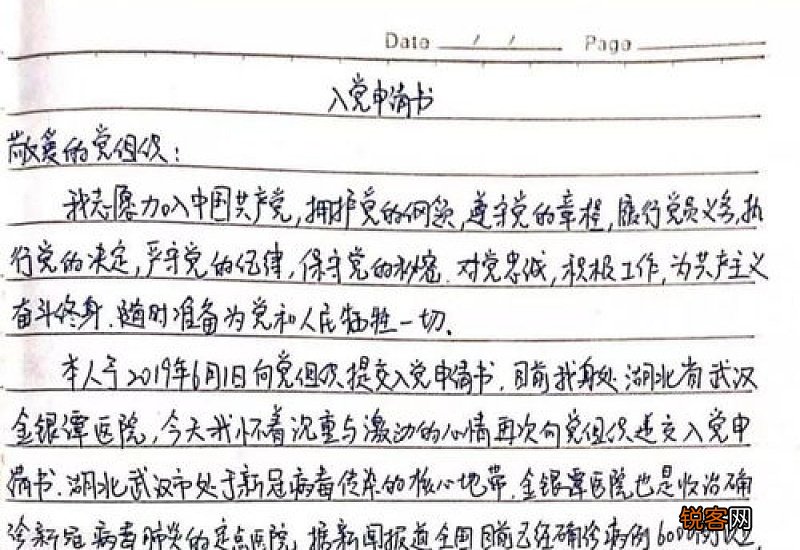 Date / / Page
入党申请书
敬爱的党组织：
我志愿加入中国共产党，拥护党的纲领，遵守党的章程，履行党员义务，执
行党的决定，严守党的纪律，保守党的秘密．对党忠诚，积极工作，为共产主义
奋斗终身．随时准备为党和人民牺牲一切．
本人于2019年6月1日向党组织提交入党申请书．目前我身处湖北省武汉
金银潭医院，今天我怀着沉重与激动的心情再次向党组织递交入党申
请书．湖北武汉市处于新冠病毒传染的核心地带．金银潭医院也是收治确
诊新冠病毒肺炎的定点医院．据新闻报道全国目前已经确诊病例6000例以上．
锐客网